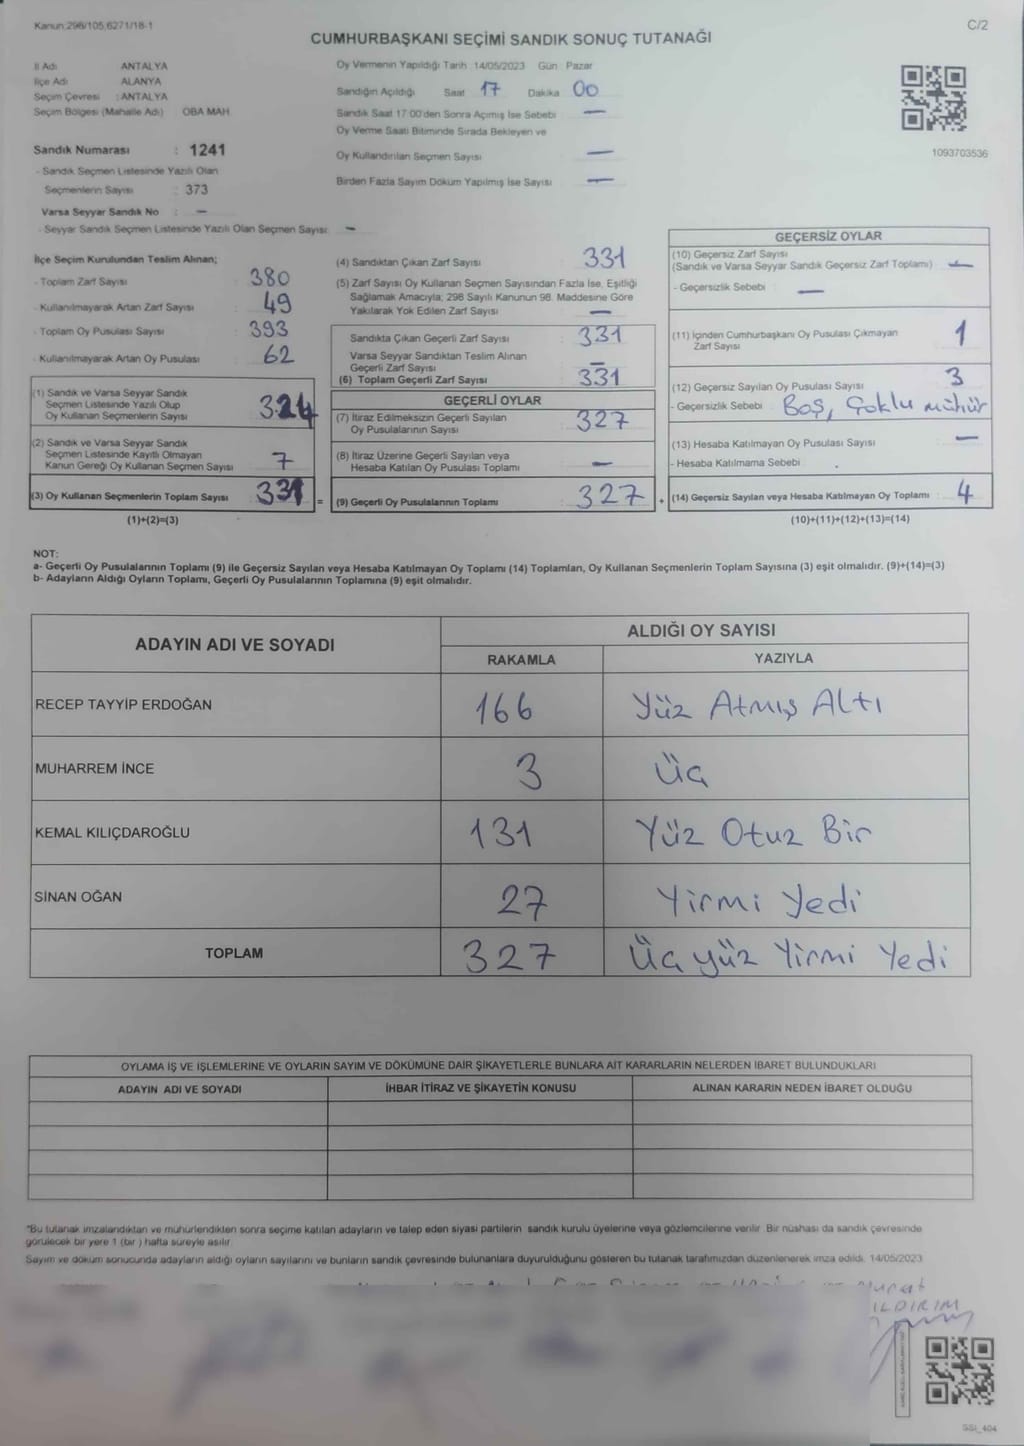 Kanun 298/105,6271/18-1
C/2
CUMHURBAŞKANI SEÇİMİ SANDIK SONUÇ TUTANAĞI
İl Adı ANTALYA
İlçe Adı ALANYA
Seçim Çevresi : ANTALYA
Seçim Bölgesi (Mahalle Adı) OBA MAH
Sandık Numarası : 1241
- Sandık Seçmen Listesinde Yazılı Olan
Seçmenlerin Sayısı : 373
Varsa Seyyar Sandık No : —
- Seyyar Sandık Seçmen Listesinde Yazılı Olan Seçmen Sayısı: —
Oy Vermenin Yapıldığı Tarih :14/05/2023 Gün : Pazar
Sandığın Açıldığı Saat 17 Dakika 00
Sandık Saat 17:00'den Sonra Açılmış İse Sebebi —
Oy Verme Saati Bitiminde Sırada Bekleyen ve
Oy Kullandırılan Seçmen Sayısı —
Birden Fazla Sayım Döküm Yapılmış İse Sayısı —
1093703536
İlçe Seçim Kurulundan Teslim Alınan;
- Toplam Zarf Sayısı : 380
- Kullanılmayarak Artan Zarf Sayısı : 49
- Toplam Oy Pusulası Sayısı : 393
- Kullanılmayarak Artan Oy Pusulası : 62
(1) Sandık ve Varsa Seyyar Sandık
Seçmen Listesinde Yazılı Olup
Oy Kullanan Seçmenlerin Sayısı 324
(2) Sandık ve Varsa Seyyar Sandık
Seçmen Listesinde Kayıtlı Olmayan
Kanun Gereği Oy Kullanan Seçmen Sayısı 7
(3) Oy Kullanan Seçmenlerin Toplam Sayısı 331 =
(1)+(2)=(3)
(4) Sandıktan Çıkan Zarf Sayısı 331
(5) Zarf Sayısı Oy Kullanan Seçmen Sayısından Fazla İse, Eşitliği
Sağlamak Amacıyla; 298 Sayılı Kanunun 98. Maddesine Göre
Yakılarak Yok Edilen Zarf Sayısı —
Sandıkta Çıkan Geçerli Zarf Sayısı 331
Varsa Seyyar Sandıktan Teslim Alınan
Geçerli Zarf Sayısı —
(6) Toplam Geçerli Zarf Sayısı 331
GEÇERLİ OYLAR
(7) İtiraz Edilmeksizin Geçerli Sayılan
Oy Pusulalarının Sayısı 327
(8) İtiraz Üzerine Geçerli Sayılan veya
Hesaba Katılan Oy Pusulası Toplamı —
(9) Geçerli Oy Pusulalarının Toplamı 327 +
GEÇERSİZ OYLAR
(10) Geçersiz Zarf Sayısı
(Sandık ve Varsa Seyyar Sandık Geçersiz Zarf Toplamı) —
- Geçersizlik Sebebi : —
(11) İçinden Cumhurbaşkanı Oy Pusulası Çıkmayan
Zarf Sayısı 1
(12) Geçersiz Sayılan Oy Pusulası Sayısı 3
- Geçersizlik Sebebi : Boş, Çoklu mühür
(13) Hesaba Katılmayan Oy Pusulası Sayısı —
- Hesaba Katılmama Sebebi :
(14) Geçersiz Sayılan veya Hesaba Katılmayan Oy Toplamı : 4
(10)+(11)+(12)+(13)=(14)
NOT:
a- Geçerli Oy Pusulalarının Toplamı (9) ile Geçersiz Sayılan veya Hesaba Katılmayan Oy Toplamı (14) Toplamları, Oy Kullanan Seçmenlerin Toplam Sayısına (3) eşit olmalıdır. (9)+(14)=(3)
b- Adayların Aldığı Oyların Toplamı, Geçerli Oy Pusulalarının Toplamına (9) eşit olmalıdır.
ADAYIN ADI VE SOYADI
ALDIĞI OY SAYISI
RAKAMLA YAZIYLA
RECEP TAYYİP ERDOĞAN 166 Yüz Atmış Altı
MUHARREM İNCE 3 Üç
KEMAL KILIÇDAROĞLU 131 Yüz Otuz Bir
SİNAN OĞAN 27 Yirmi Yedi
TOPLAM 327 Üç yüz Yirmi Yedi
OYLAMA İŞ VE İŞLEMLERİNE VE OYLARIN SAYIM VE DÖKÜMÜNE DAİR ŞİKAYETLERLE BUNLARA AİT KARARLARIN NELERDEN İBARET BULUNDUKLARI
ADAYIN ADI VE SOYADI İHBAR İTİRAZ VE ŞİKAYETİN KONUSU ALINAN KARARIN NEDEN İBARET OLDUĞU
*Bu tutanak imzalandıktan ve mühürlendikten sonra seçime katılan adayların ve talep eden siyasi partilerin sandık kurulu üyelerine veya gözlemcilerine verilir. Bir nüshası da sandık çevresinde
görülecek bir yere 1 (bir ) hafta süreyle asılır.
Sayım ve döküm sonucunda adayların aldığı oyların sayılarını ve bunların sandık çevresinde bulunanlara duyurulduğunu gösteren bu tutanak tarafımızdan düzenlenerek imza edildi. 14/05/2023
Murat
ILDIRIM
SSI_404